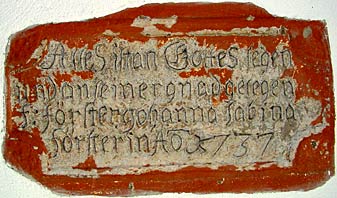 Alles ist an Gottes segen
und an seiner gnad gelegen
F: Förster Johanna Sabina
Försterin AO 1737